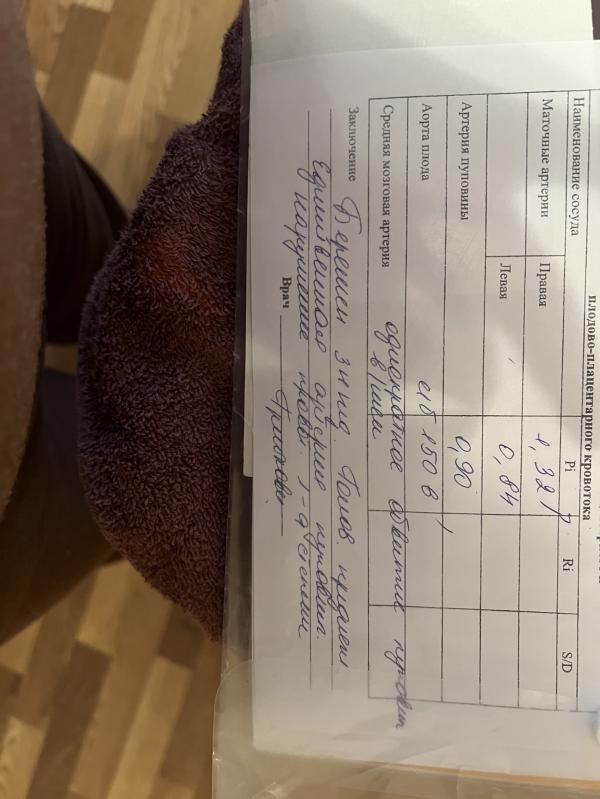 плодово-плацентарного кровотока
Наименование сосуда Pi Ri S/D
Маточные артерии Правая 1,32
Левая 0,84
Артерия пуповины 0,90
Аорта плода 150 в
Средняя мозговая артерия однократное обвитие пуповин
в/шеи
Заключение Беремен нед. Голов. предлеж.
Единственная артерия пуповин.
нарушение кровот. 1-а степени
Врач